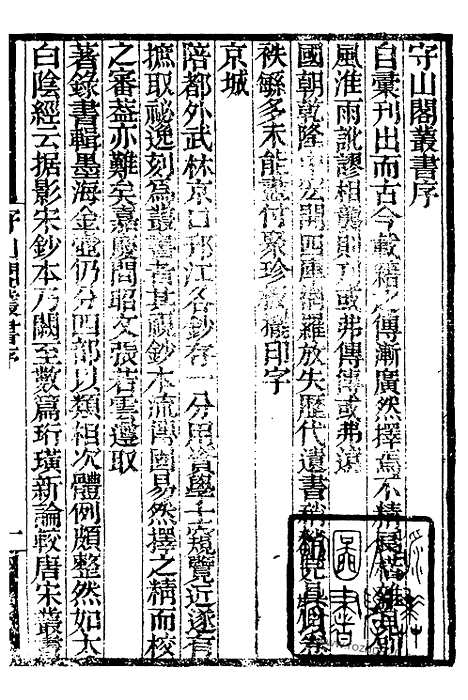 守山閣叢書序
自彙刊出而古今載籍之傳漸廣然擇焉不精展
風淮雨訛謬相襲則或弗傳傳或弗遠
國朝乾隆中宏開四庫網羅放失歷代遺書稍稍
袟繇多未能悉付聚珍
印字
京城
陪都外武林京口邗江各鈔存一分用資學士窺覽近遂有
摭取祕逸刻爲叢書者其視鈔本流傳固易然擇之精而校
之審葢亦難矣嘉慶間昭文張若雲選取
著錄書輯墨海金壺仍分四部以類相次體例頗整然如太
白陰經云据影宋鈔本乃闕至數篇珩璜新論較唐宋叢書
守山閣叢書序
一